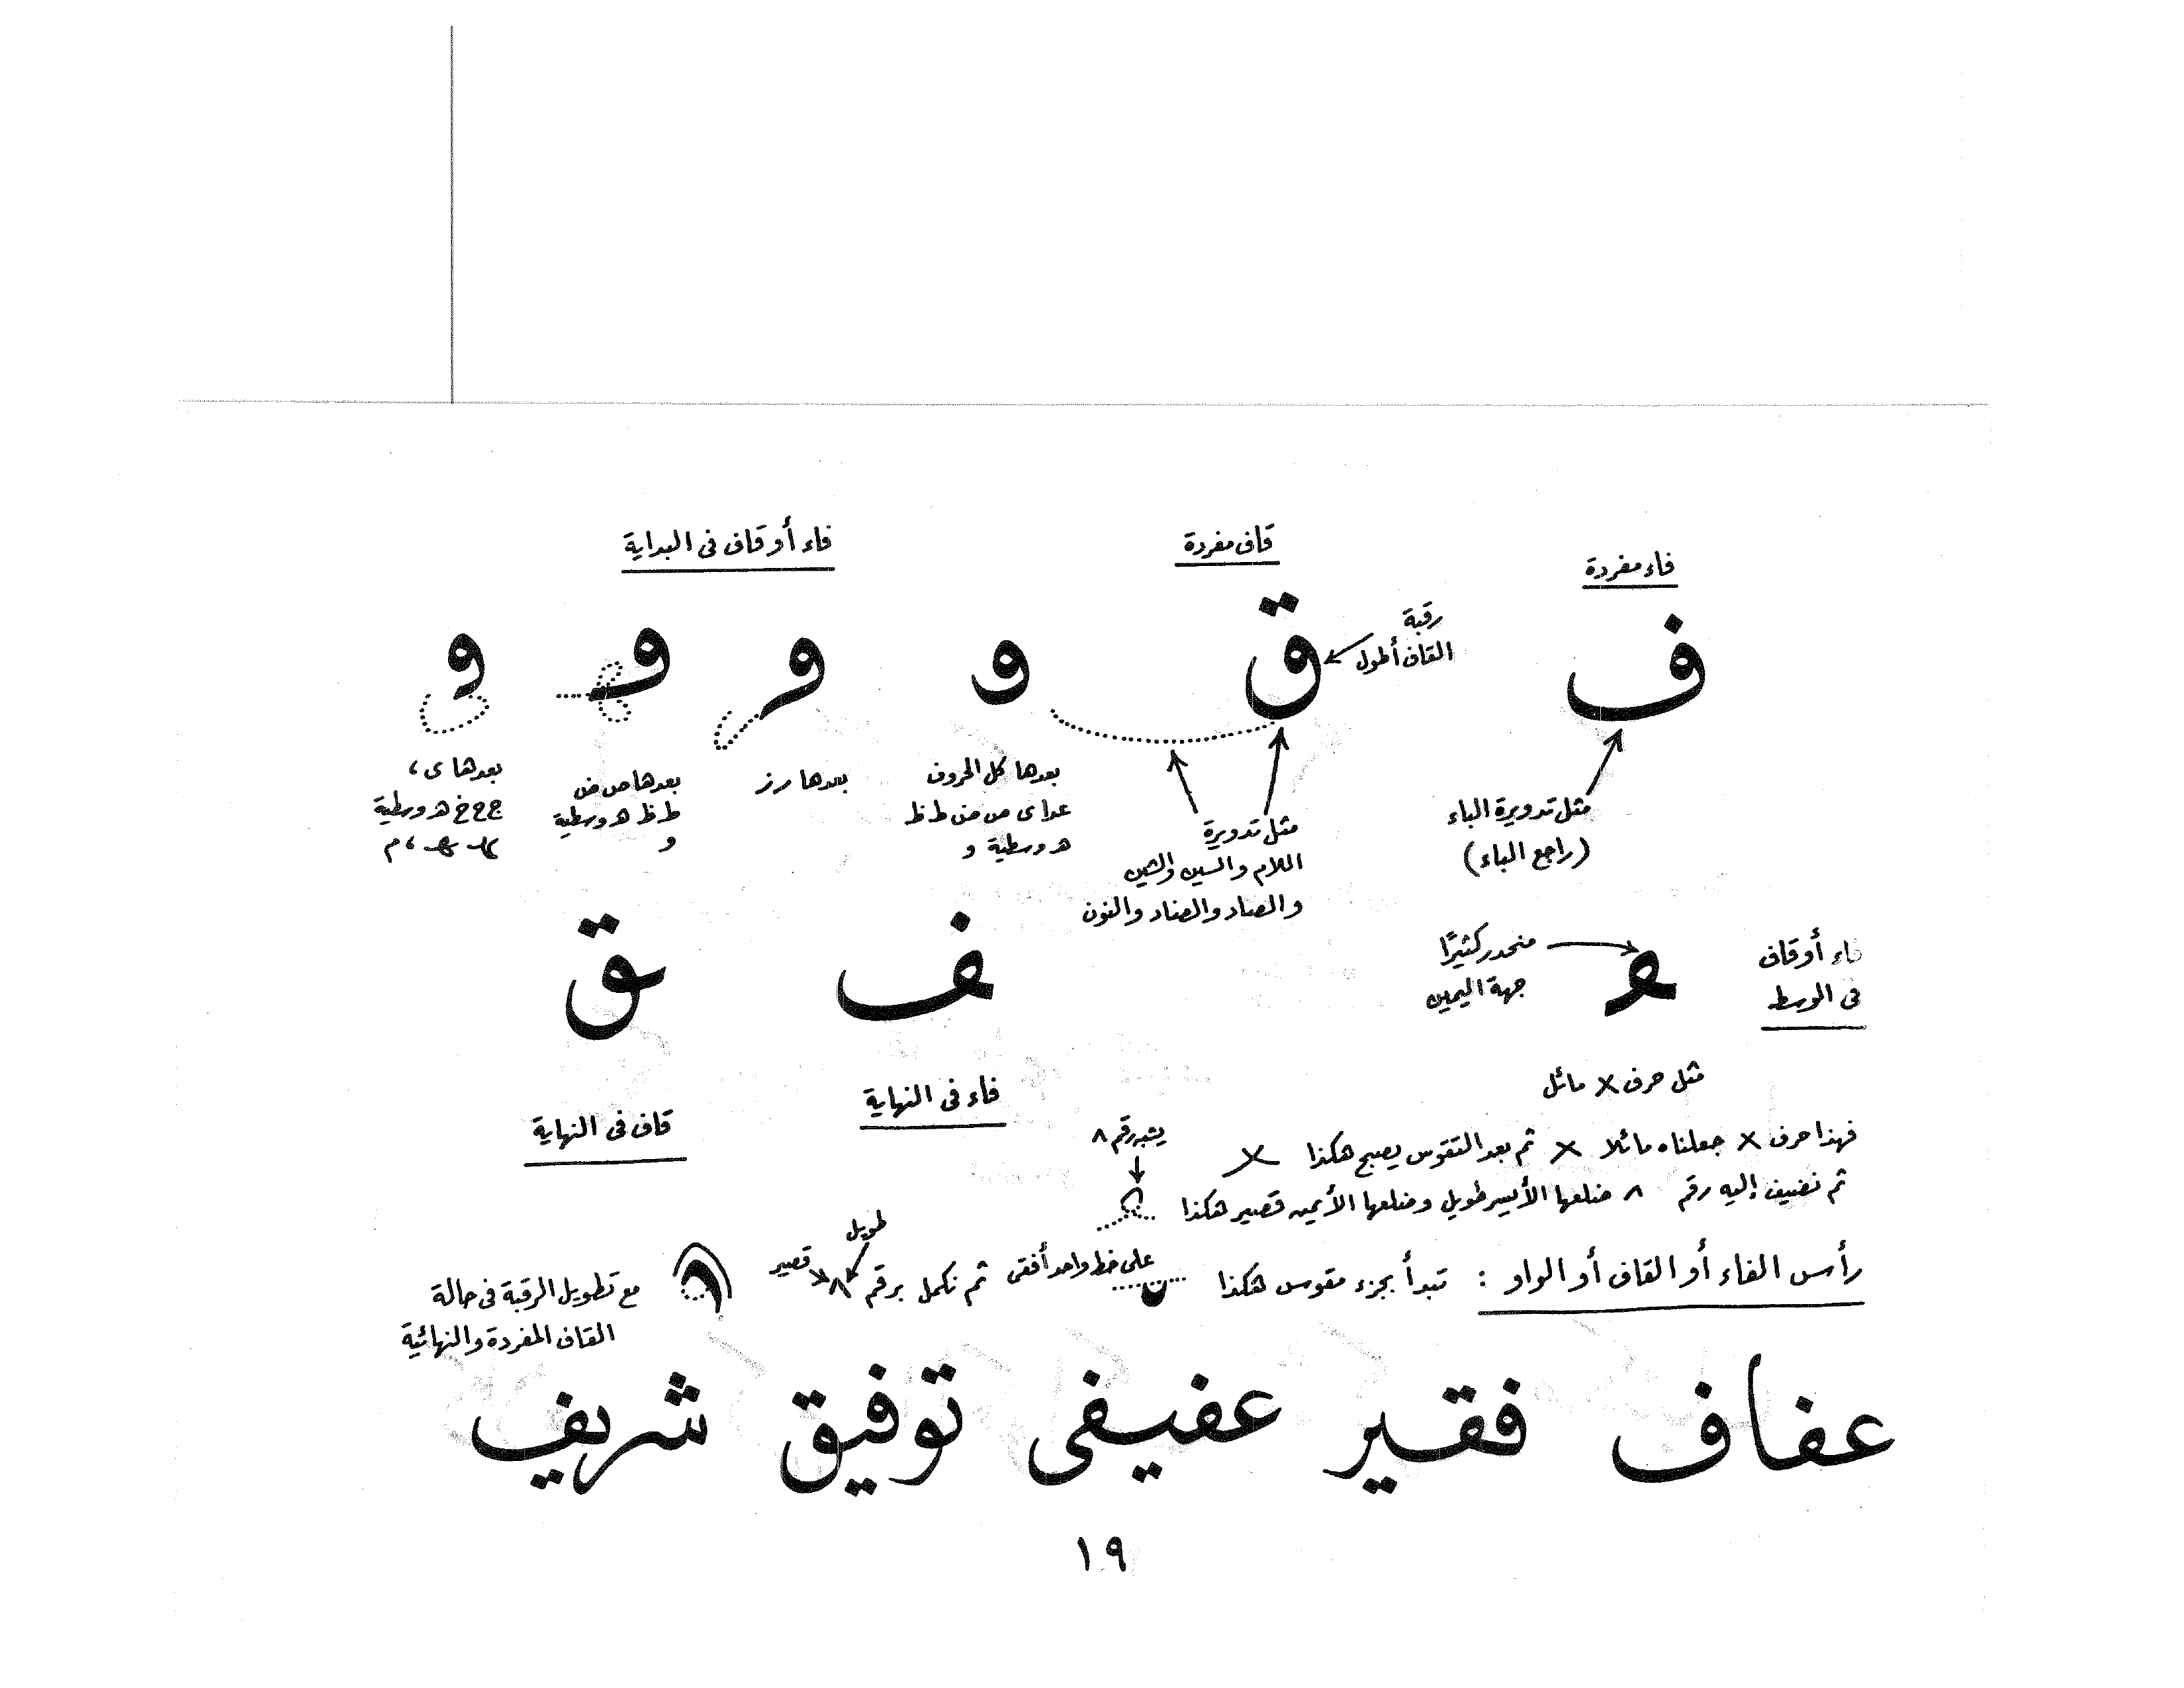 فاء مفردة
قاف مفردة
فاء أو قاف فى البداية
ف
ق
رقبة
القاف أطول
مثل تدويرة الباء
(راجع الباء)
مثل تدويرة
اللام والسين والشين
والصاد والضاد والنون
بعدها كل الحروف
عدا ى ص ض ط ظ
ه وسطية و
بعدها ر ز
بعدها ص ض
ط ظ ه وسطية
و
بعدها ى ،
ج ح خ ه وسطية
، م
فاء أو قاف
فى الوسط
منحدر كثيرًا
جهة اليمين
ف
ق
فاء فى النهاية
قاف فى النهاية
مثل حرف x مائل
فهذا حرف x جعلناه مائلا x ثم بعد التقوس يصبح هكذا x
يشبه رقم ٨
ثم نضيف إليه رقم ٨ ضلعها الأيسر طويل وضلعها الأيمن قصير هكذا
رأس الفاء أو القاف أو الواو : تبدأ بجزء مقوس هكذا
على خط واحد أفقى ثم نكمل برقم ٨
طويل
قصير
مع تطويل الرقبة فى حالة
القاف المفردة والنهائية
عفاف فقير عفيفى توفيق شريف
١٩